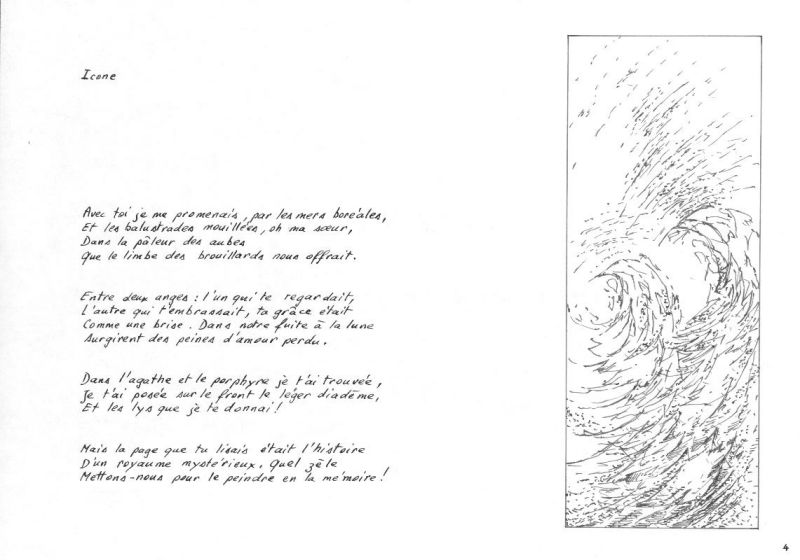 Icone
Avec toi je me promenais, par les mers boréales,
Et les balustrades mouillées, oh ma sœur,
Dans la pâleur des aubes
Que le limbe des brouillards nous offrait.
Entre deux anges : l'un qui te regardait,
L'autre qui t'embrassait, ta grâce était
Comme une brise. Dans notre fuite à la lune
Surgirent des peines d'amour perdu.
Dans l'agathe et le porphyre je t'ai trouvée,
Je t'ai posée sur le front le léger diadème,
Et les lys que je te donnai !
Mais la page que tu lisais était l'histoire
D'un royaume mystérieux. Quel zèle
Mettons-nous pour le peindre en la mémoire !
4